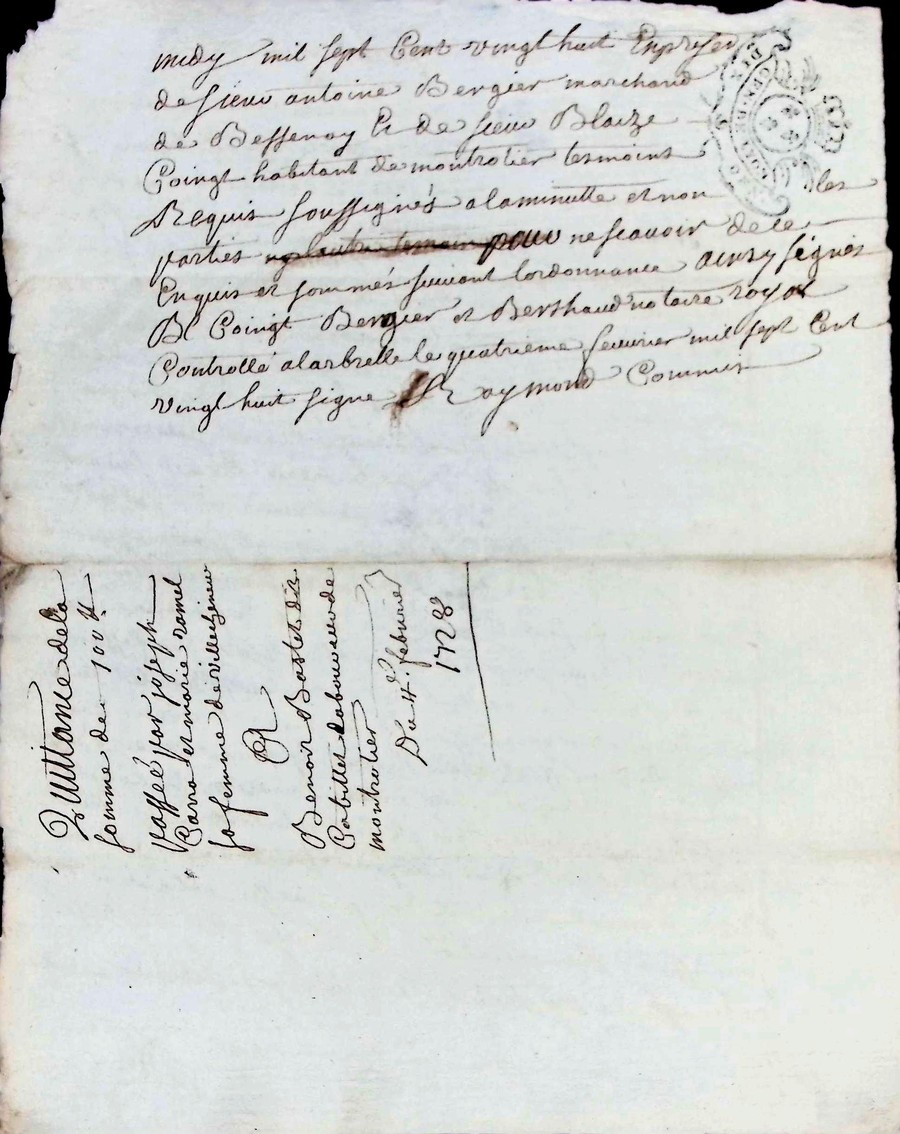 midy mil sept Cent vingt huit En presence
de sieur antoine Bergier marchand
de Bessenay Et de sieur Blaize
Coingt habitant de montrotier tesmoins
Requis soussignés a la minutte et non les
parties pour ne scavoir de ce
Enquis et sommés suivant lordonnance ainsy signés
Bl Coingt Bergier et Berthaud notaire royal
Controllé a larbrelle le quatrieme feuvrier mil sept Cent
vingt huit signé Raymond Commis
Quittance de la
somme de 100 ₶
passée par joseph
Carra et marie ramel
sa femme de Villecheneve
A
Benoit Bastet dit
Cabillet laboureur de
montrotier
Du 4e feburier
1728